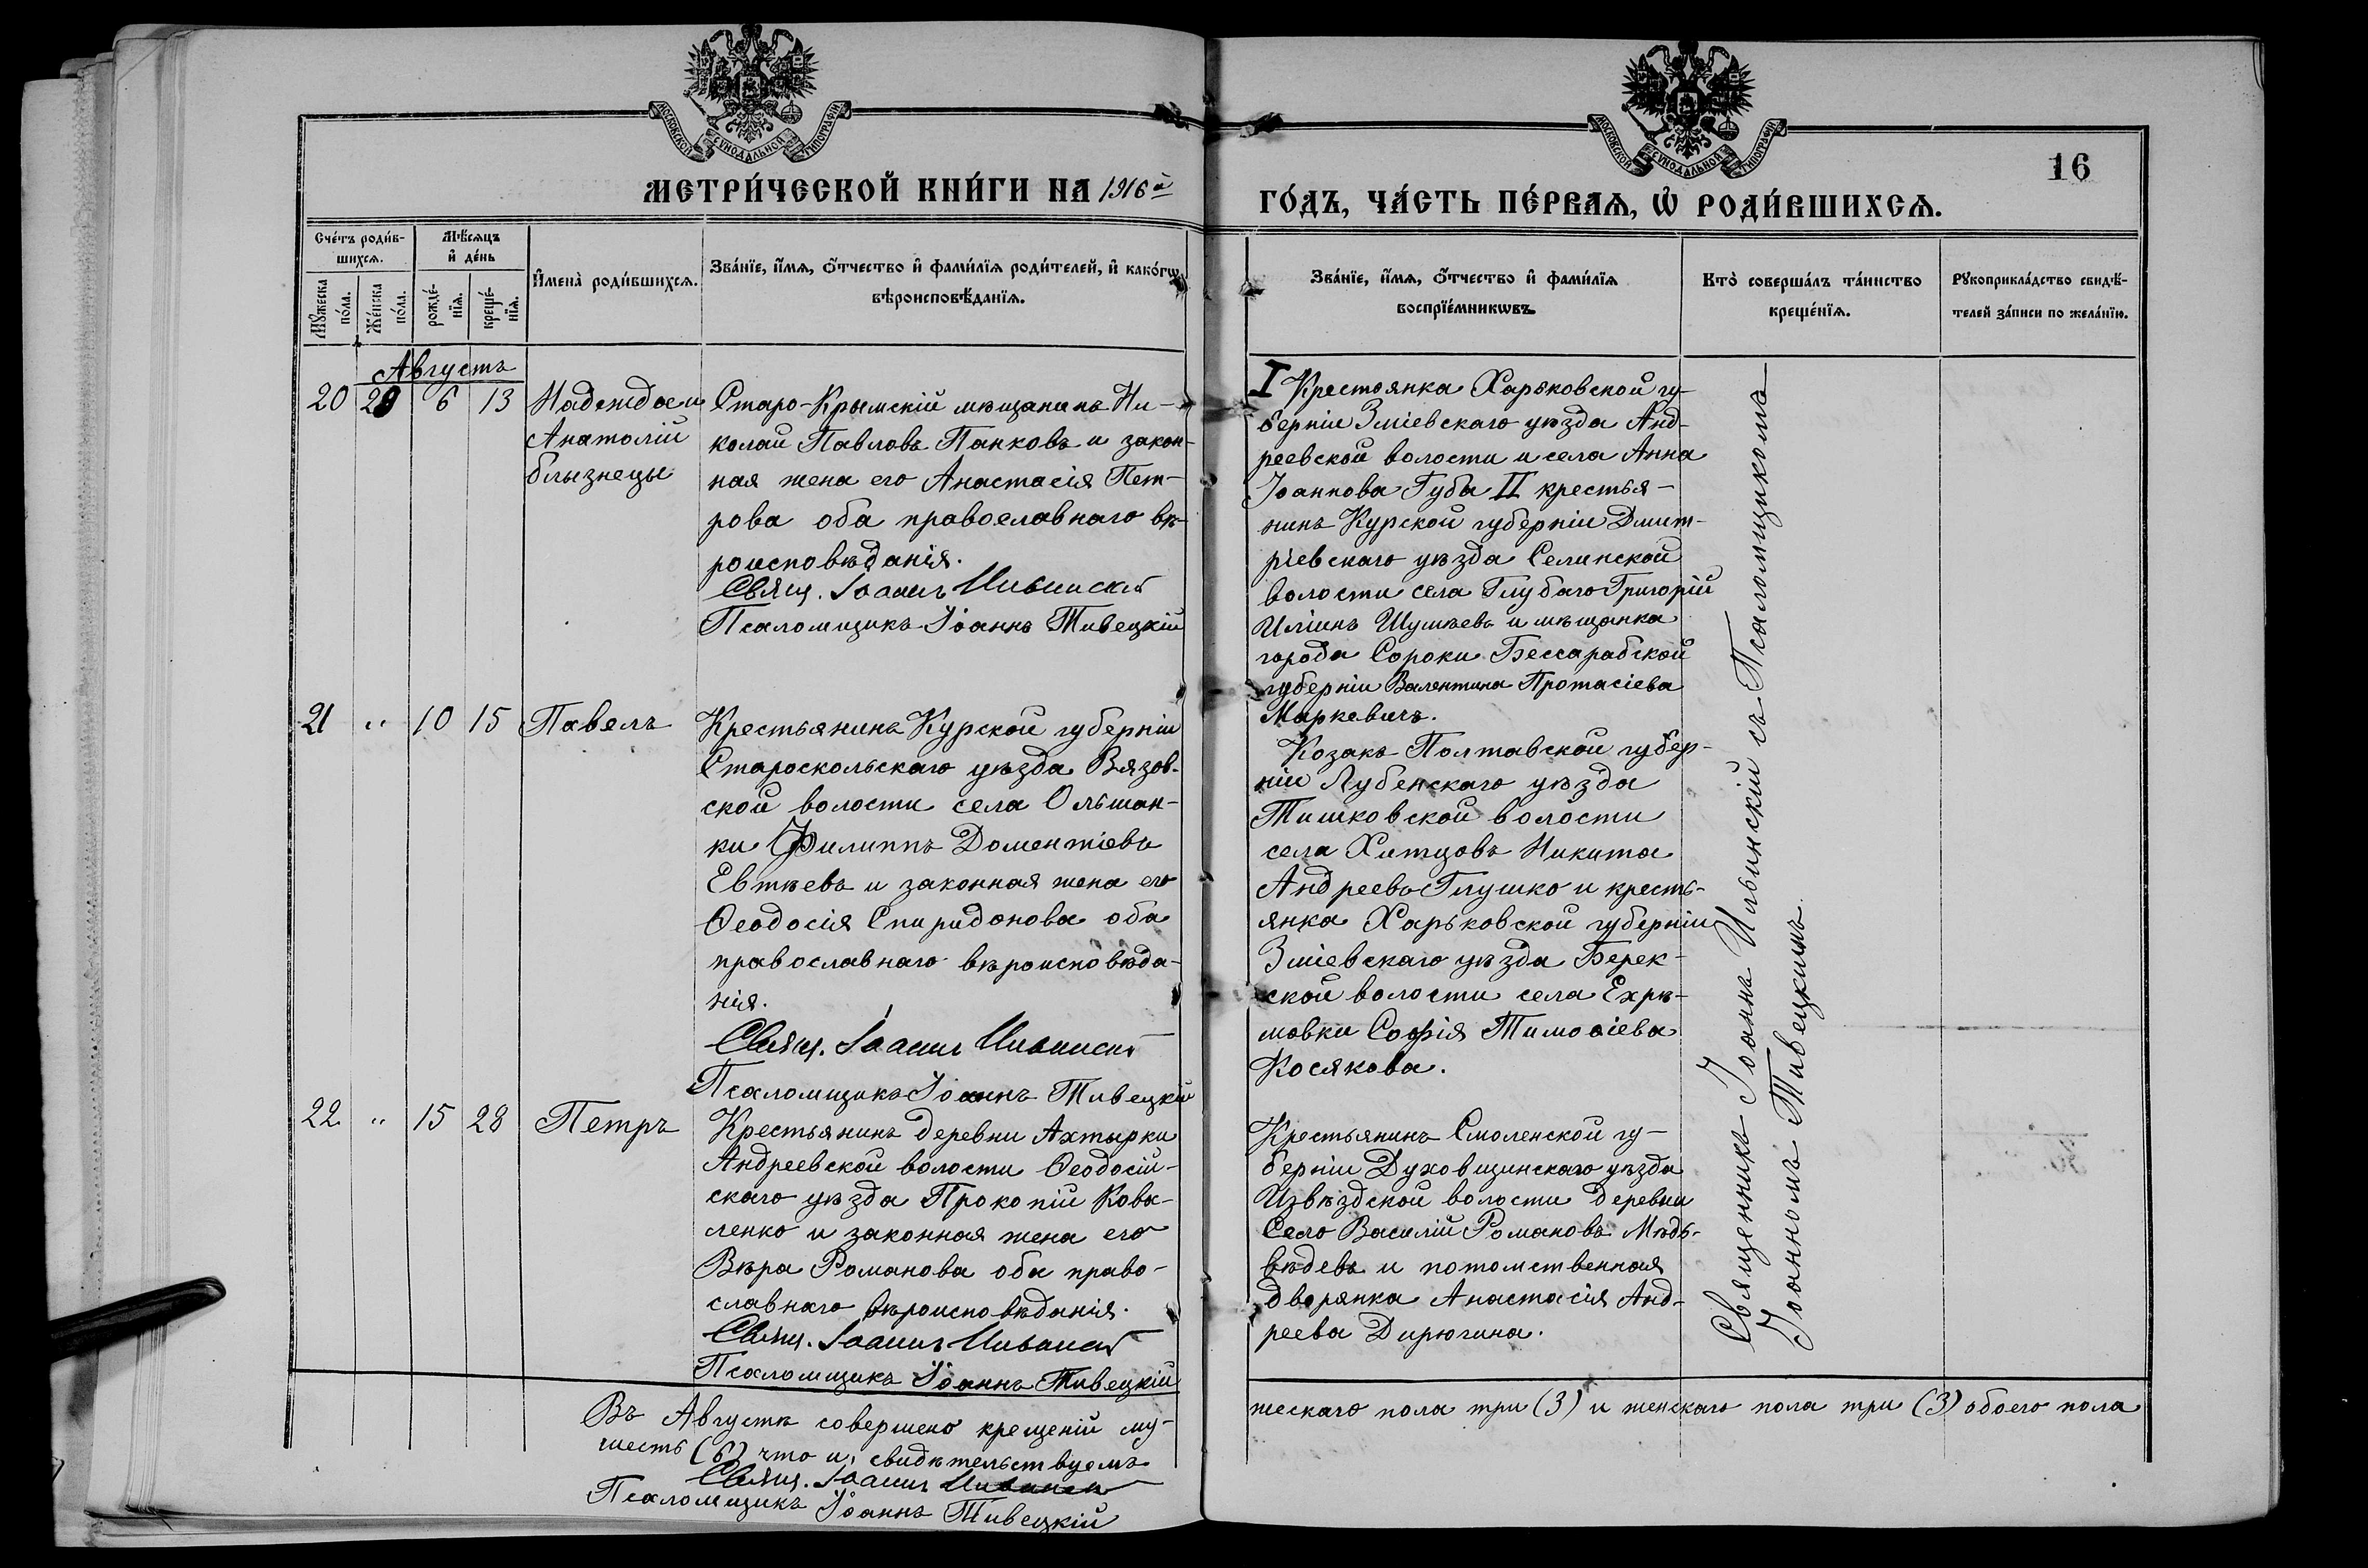 МОСКОВСКОЙ СѴНОДАЛЬНОЙ ТИПОГРАФІИ
МЕТРИ́ЧЕСКОЙ КНИ́ГИ НА 1916й
Сче́тъ роди́в-
шихсѧ.
Мꙋ́жеска
по́ла.
Же́нска
по́ла.
Мѣ́сѧцъ
и҆ де́нь
рожде́-
нїѧ.
креще́-
нїѧ.
И҆мена̀ роди́вшихсѧ.
Зва́нїе, и҆́мѧ, ѻ҆́тчество и҆ фами́лїѧ роди́телей, и҆ како́гѡ
вѣроисповѣ́данїѧ.
Августъ
20 20 6 13 Надежда и
Анатолій
близнецы
Старо-Крымскій мѣщанинъ Ни-
колай Павловъ Панковъ и закон-
ная жена его Анастасія Пет-
рова оба православнаго вѣ-
роисповѣданія.
Свящ. Іоаннъ Ильинскій
Псаломщикъ Іоаннъ Тивецкій
21 " 10 15 Павелъ
Крестьянинъ Курской губерніи
Староскольскаго уѣзда Вязов-
ской волости села Ольшан-
ки Филиппъ Доментіевъ
Евтѣевъ и законная жена его
Ѳеодосія Спиридонова оба
православнаго вѣроисповѣда-
нія.
Свящ. Іоаннъ Ильинскій
Псаломщикъ Іоаннъ Тивецкій
22 " 15 28 Петръ
Крестьянинъ деревни Ахтырки
Андреевской волости Ѳеодосій-
скаго уѣзда Прокопій Кова-
ленко и законная жена его
Вѣра Романова оба право-
славнаго вѣроисповѣданія.
Свящ. Іоаннъ Ильинскій
Псаломщикъ Іоаннъ Тивецкій
Въ Августѣ совершено крещеній му-
шесть (6) что и свидѣтельствуемъ
Свящ. Іоаннъ Ильинскій
Псаломщикъ Іоаннъ Тивецкій
МОСКОВСКОЙ СѴНОДАЛЬНОЙ ТИПОГРАФІИ
16
ГО́ДЪ, ЧА́СТЬ ПЕ́РВАѦ, Ѡ҆ РОДИ́ВШИХСѦ.
Зва́нїе, и҆́мѧ, ѻ҆́тчество и҆ фами́лїѧ
воспрїе́мникѡвъ.
Кто̀ соверша́лъ та́инство
креще́нїѧ.
Рꙋкоприкла́дство свидѣ́-
телей за́писи по жела́нїю.
I Крестоянка Харьковской гу-
берніи Зміевскаго уѣзда Анд-
реевской волости и села Анна
Іоаннова Губа II крестья-
нинъ Курской губерніи Дмит-
ріевскаго уѣзда Селинской
волости села Глубаго Григорій
Иліинъ Шумѣевъ и мѣщанка
города Сороки Бессарабской
губерніи Валентина Протасіева
Маркевичъ.
Козакъ Полтавской губер-
ніи Лубенскаго уѣзда
Тишковской волости
села Хитцовъ Никита
Андреевъ Глушко и кресть-
янка Харьковской губерніи
Зміевскаго уѣзда Берек-
ской волости села Ехрѣ-
мовки Софія Тимоѳіева
Косякова.
Крестьянинъ Смоленской гу-
берніи Духовщинскаго уѣзда
Извѣздской волости деревни
Село Василій Романовъ Мѣдь-
вѣдевъ и потомственная
дворянка Анастасія Анд-
реева Дирюгина.
Священникъ Іоаннъ Ильинскій съ Псаломщикомъ
Іоанномъ Тивецкимъ.
жескаго пола три (3) и женскаго пола три (3) обоего пола